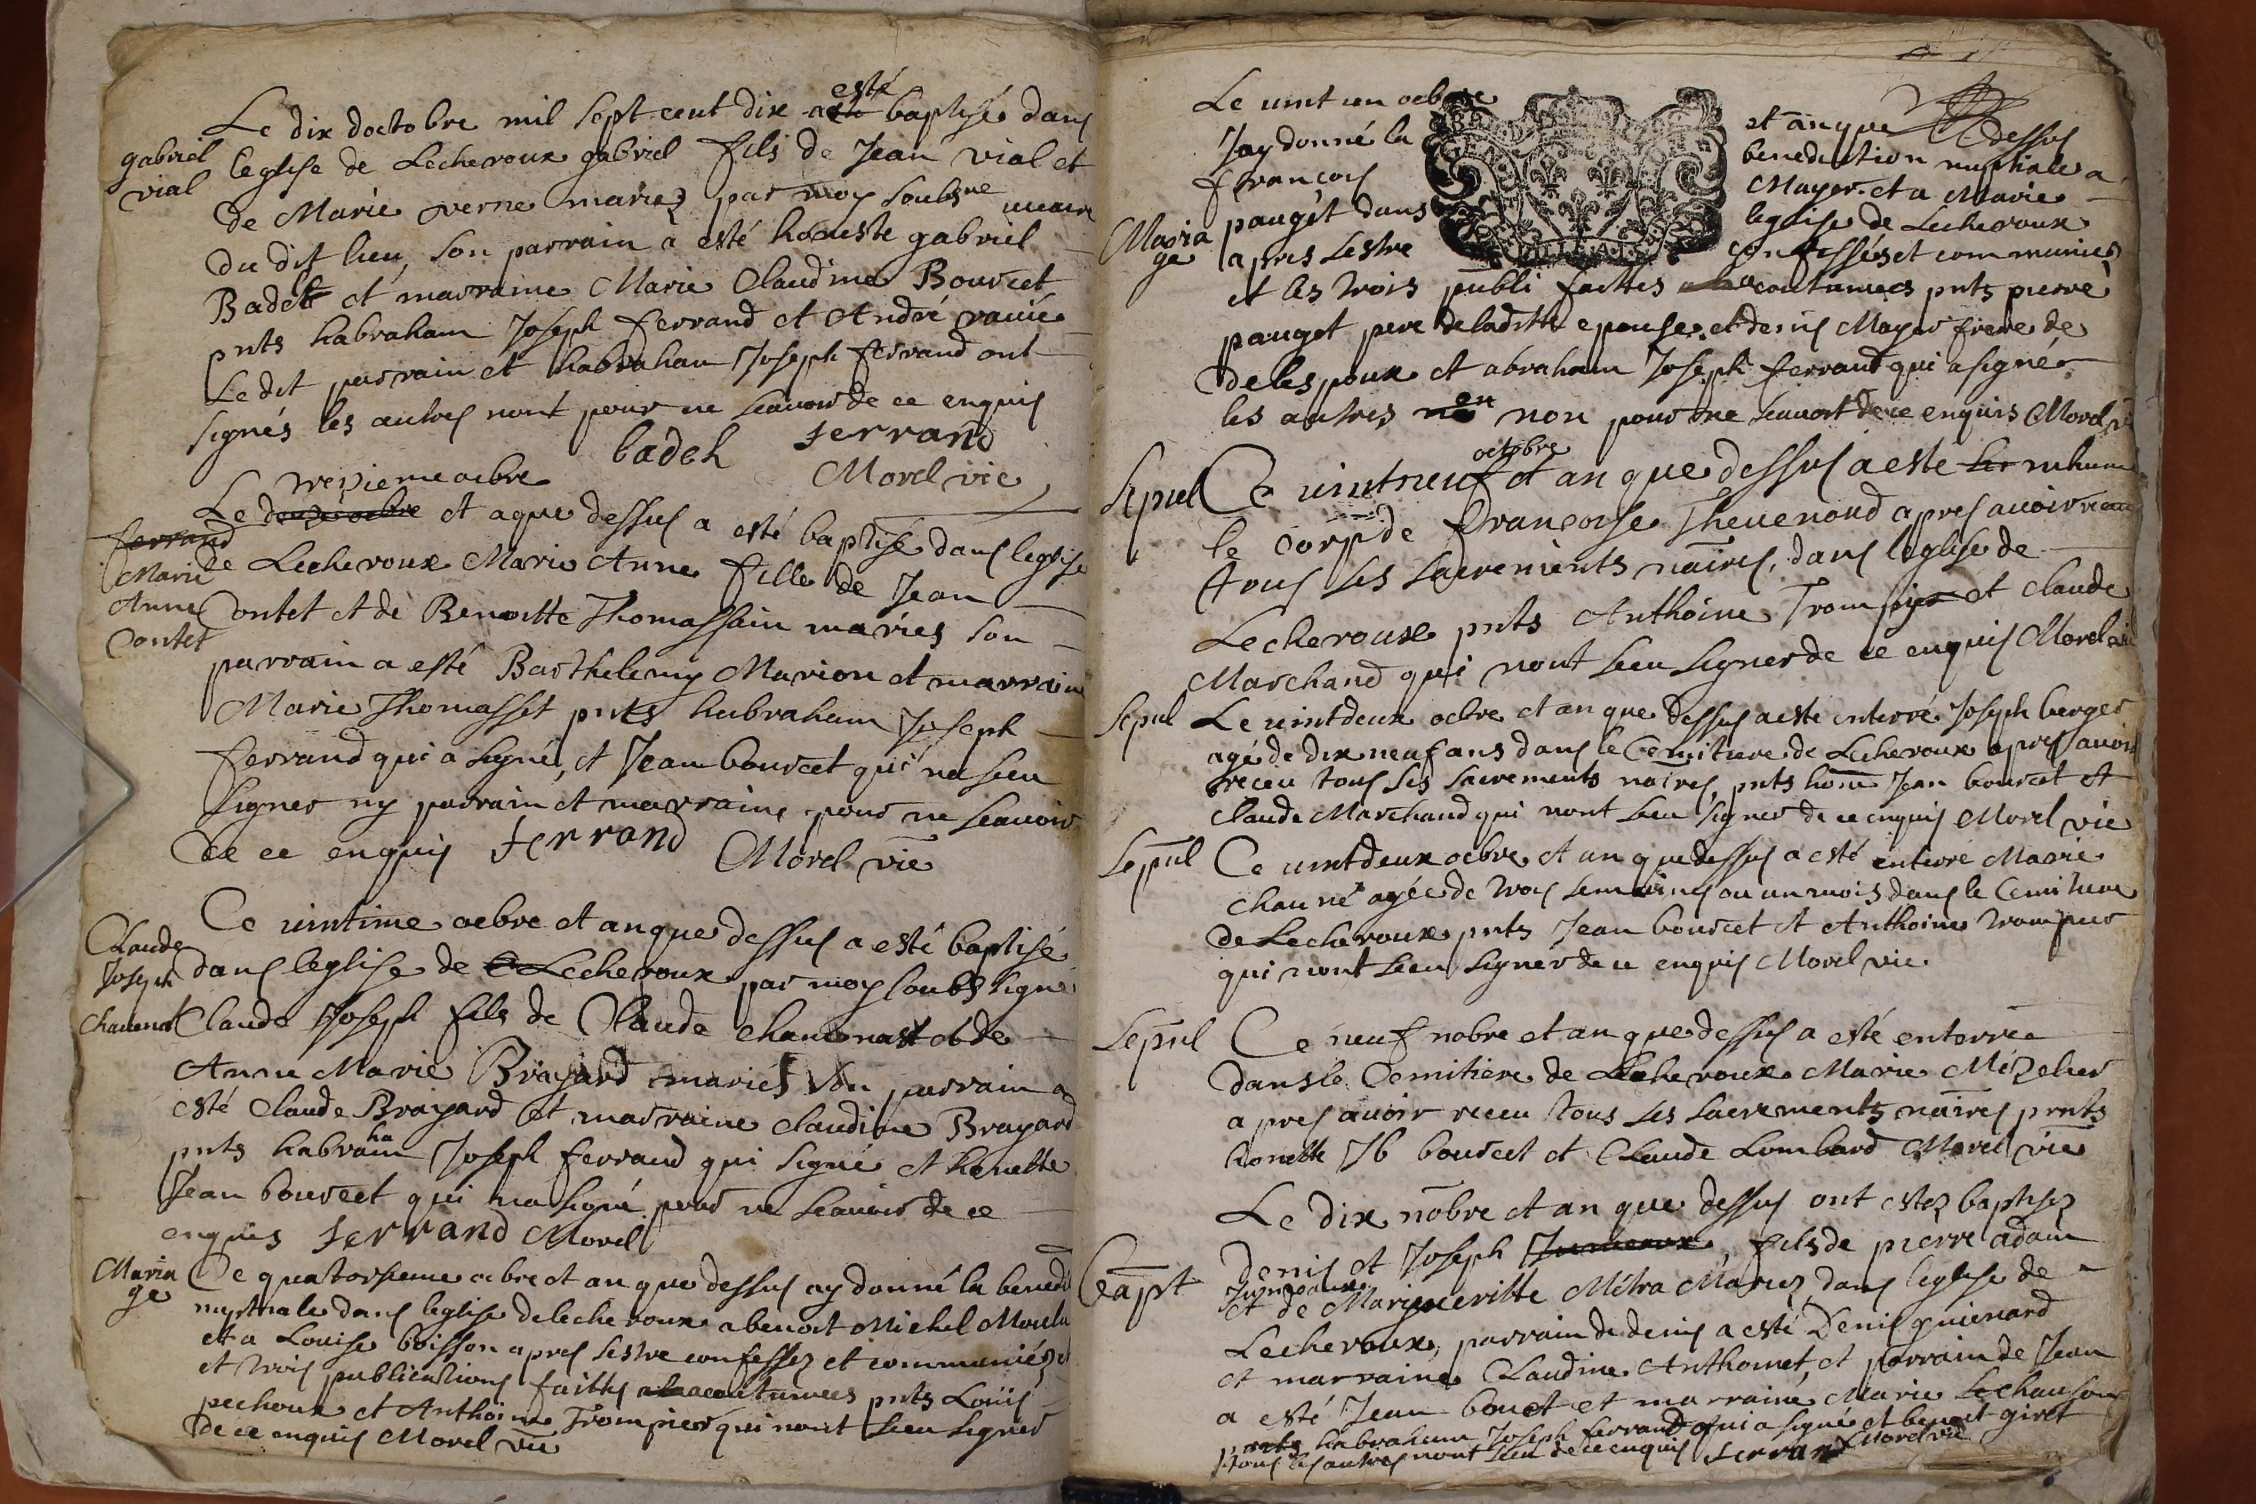 Le dix doctobre mil sept cent dix a esté baptisé dans
gabriel
vial
leglise de Lecheroux gabriel fils de Jean vial et
de Marie verne mariez par moy soubsne vicaire
du dit lieu, son parrain a esté honeste gabriel
Badet et marraine Marie Claudine Bourcet
pnts habraham Joseph ferrand et André
Le dit parrain et habraham Joseph ferrand ont
signés les autres nont pour ne scavoir de ce enquis
badet ferrand
Morel vic
trezieme octbre
Le douze octbre et a que dessus a esté baptisé dans leglise
ferrand
Marie
Anne
Contet
de Lecheroux Marie Anne fille de Jean
Contet et de Benoitte Thomassain maries son
parrain a esté Barthelemy Marion et marraine
Marie Thomasset pnts habraham Joseph
ferrand qui a signé, et Jean bourcet qui na sceu
signer ny parrain et marraine pour ne scavoir
de ce enquis ferrand Morel vic
Ce vintime octbre et an que dessus a esté baptisé
Claude
Joseph
Chavenat
dans leglise de Lecheroux par moy soubs signe
Claude Joseph fils de Claude chavenat et de
Anne Marie Brayard maries son parrain a
esté Claude Brayard et marraine Claudine Brayard
pnts habraham Joseph ferrand qui signé et honeste
Jean bourcet qui na signé pour ne scavoir de ce
enquis ferrand Morel
Maria
ge
Ce quatorsieme octbre et an que dessus ay donné la bened
nuptiale dans leglise de lecheroux a benoit Michel
et a Louise boisson apres sestre confessez et communiéz
et trois publications faittes acoutumees pnts Louis
pechoux et Anthoine Trompier qui nont sceu signer
de ce enquis Morel vic
Le vint un octbre et an que dessus
Jay donné la benediction nuptiale a
francois Mayer et a Marie
Maria
ge
pauget dans leglise de Lecheroux
apres sestre confessés et communiés
et les trois publi faittes coutumees pnts pierre
pauget pere de la ditte epouse et denis Mayer frere de
de lespoux et abraham Joseph ferrand qui a signé
les autres non pour ne scavoir de ce enquis Morel vic
Sepul
Ce vintneuf octobre et an que dessus a este inhumé
le corp de francoise Thevenond apres avoir receu
tous ses sacrements nāires, dans leglise de
Lecheroux pnts Anthoine Trompier et Claude
Marchand qui nont sceu signer de ce enquis Morel vic
Sepul
Le vintdeux octbre et an que dessus a este enterré Joseph berger
agé de dix neuf ans dans le Cemitiere de Lecheroux apres avoir
receu tous ses sacrements nāires, pnts hone Jean bourcet et
Claude Marchand qui nont sceu signer de ce enquis Morel vic
Sepul
Ce vintdeux octbre et an que dessus a esté enterré Marie
agée de trois semaines ou un mois dans le Cemitiere
de Lecheroux pnts Jean bourcet et Anthoine trompier
qui nont sceu signer de ce enquis Morel vic
Sepul
Ce neuf nobre et an que dessus a esté enterrée
dans le Cemitiere de Lecheroux Marie Mézelier
apres avoir receu tous ses sacrements nāires pnts
honeste Jb bourcet et Claude Lombard Morel vic
Le dix nobre et an que dessus ont estez baptisez
Bapt
Denis et Joseph Jumeaux, fils de pierre adam
Jumeaux
et de Margueritte Métra Mariez, dans leglise de
Lecheroux, parrain de denis a esté Denis guienard
et marraine Claudine Anthomet, et parrain de Jean
a esté Jean bouet et marraine Marie
pnts habraham Joseph ferrand qui a signé et benoit giret
tous les autres nont sceu de ce enquis ferrand Morel vic